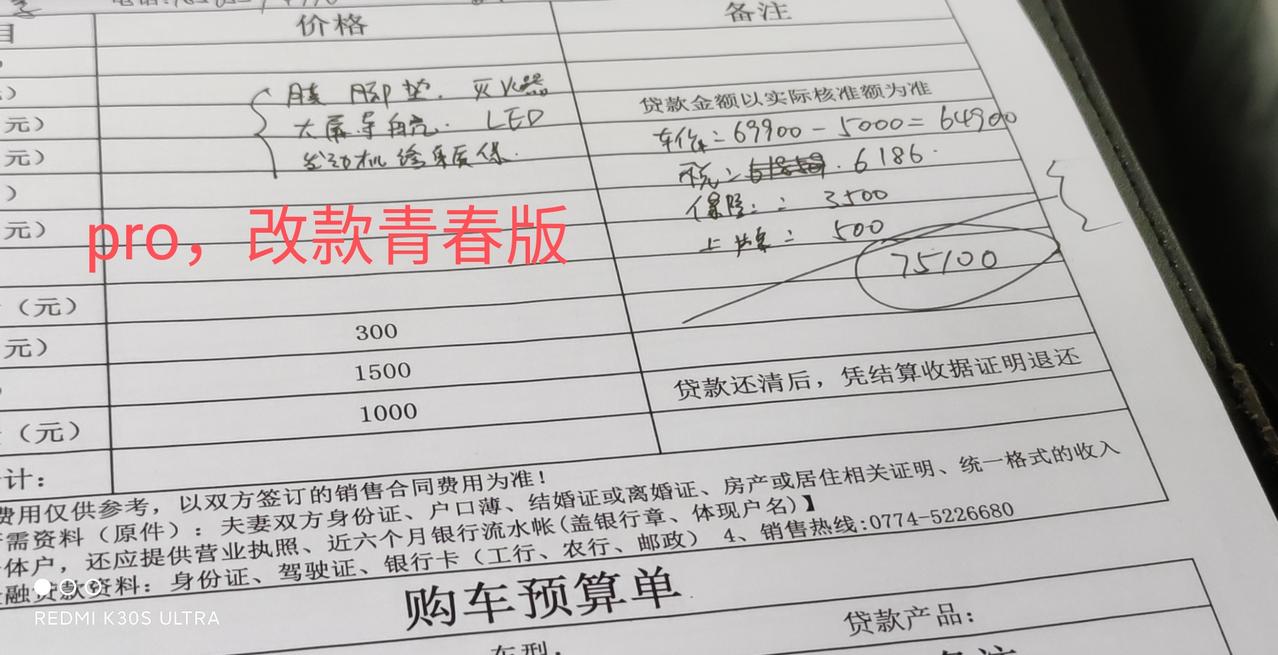 价格
备注
元）
贷款金额以实际核准额为准
膜 脚垫. 灭火器
大屏导航. LED
发动机终身质保.
车价=69900-5000=64900
元）
税: 6186.
保险: 3500
上牌: 500
75100
元）
pro，改款青春版
（元）
300
元）
1500
贷款还清后，凭结算收据证明退还
（元）
1000
计：
费用仅供参考，以双方签订的销售合同费用为准！
需资料（原件）：夫妻双方身份证、户口薄、结婚证或离婚证、房产或居住相关证明、统一格式的收入
体户，还应提供营业执照、近六个月银行流水帐(盖银行章、体现户名)】
融贷款资料：身份证、驾驶证、银行卡（工行、农行、邮政） 4、销售热线:0774-5226680
REDMI K30S ULTRA
购车预算单
车型：
贷款产品：